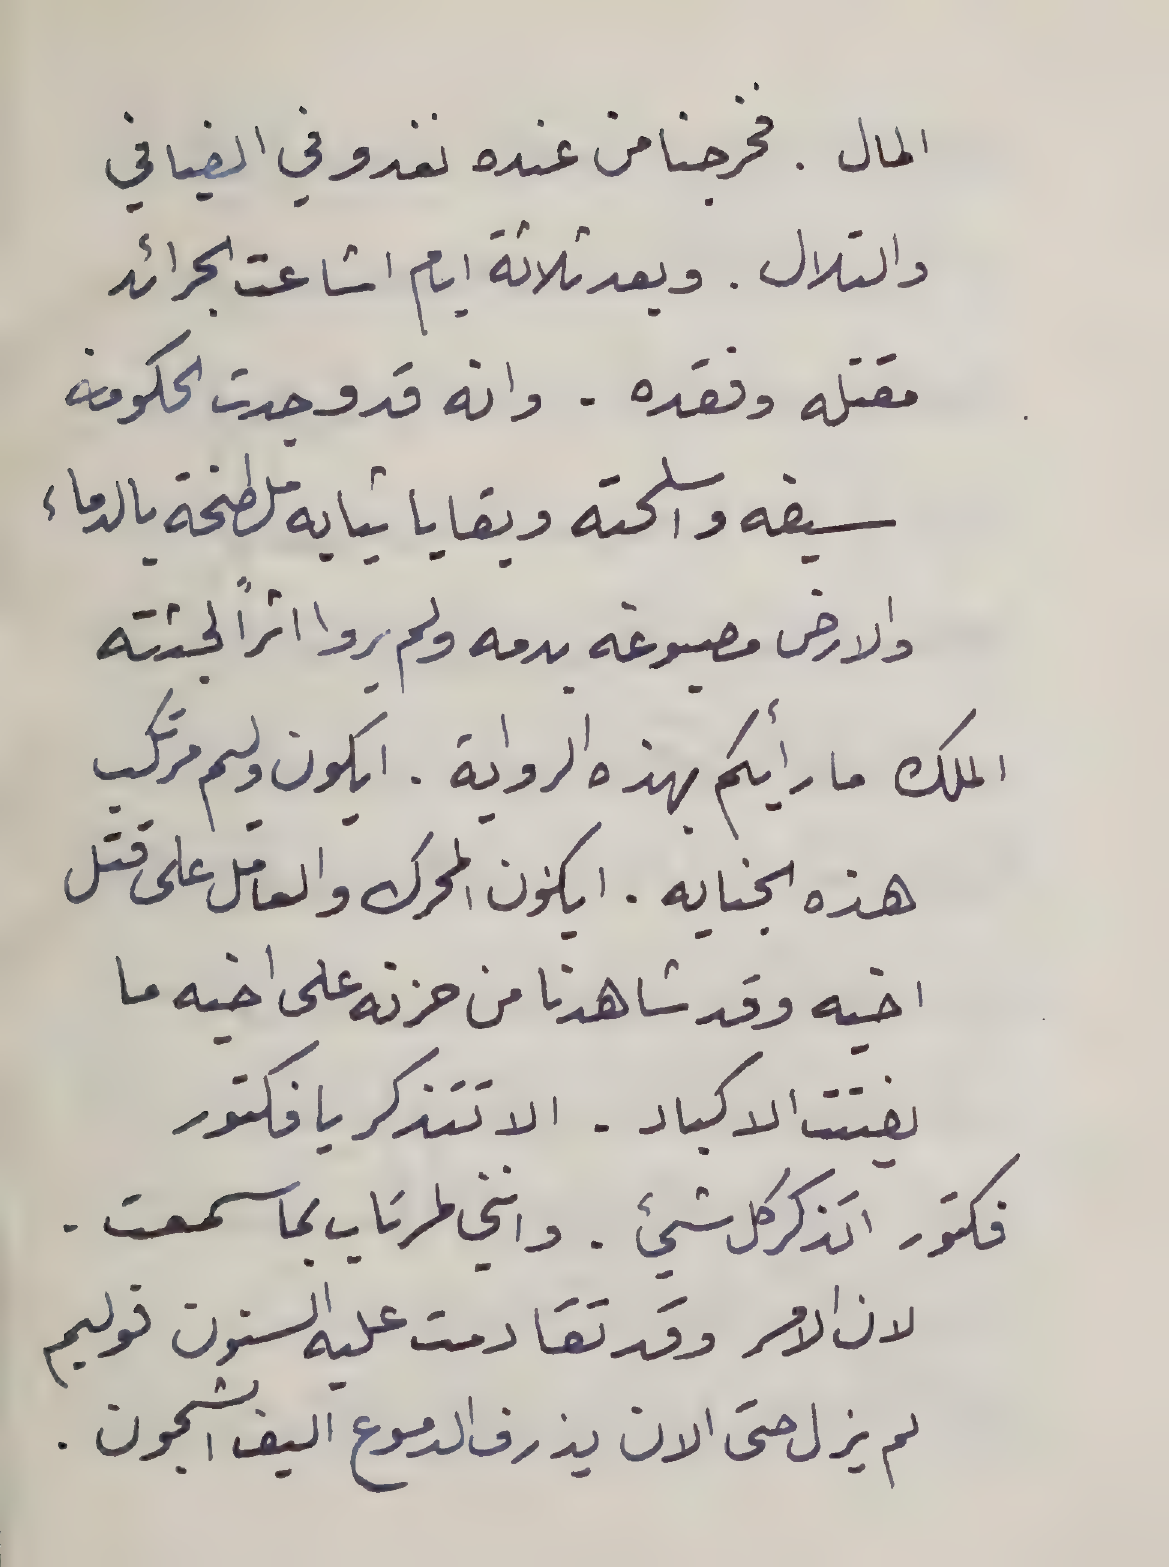 المال . فخرجنا من عنده نغدو في الفيافي
والتلال . وبعد ثلاثة ايام اشاعت الجرائد
مقتله وفقده - وانه قد وجدت الحكومة
سيفه واسلحته وبقايا ثيابه ملطخة بالدماء
والارض مصبوغه بدمه ولم يروا اثراً لجثته
الملك ما رأيكم بهذه الرواية . ايكون وليم مرتكب
هذه الجنايه . ايكون المحرك والعامل على قتل
اخيه وقد شاهدنا من حزنه على اخيه ما
يفتت الاكباد - الا تتذكر يا فكتور
فكتور اتذكر كل شيئ . وانني لمرتاب بما سمعت -
لان الامر وقد تقادمت عليه السنون فوليم
لم يزل حتى الان يذرف الدموع اليف الشجون .